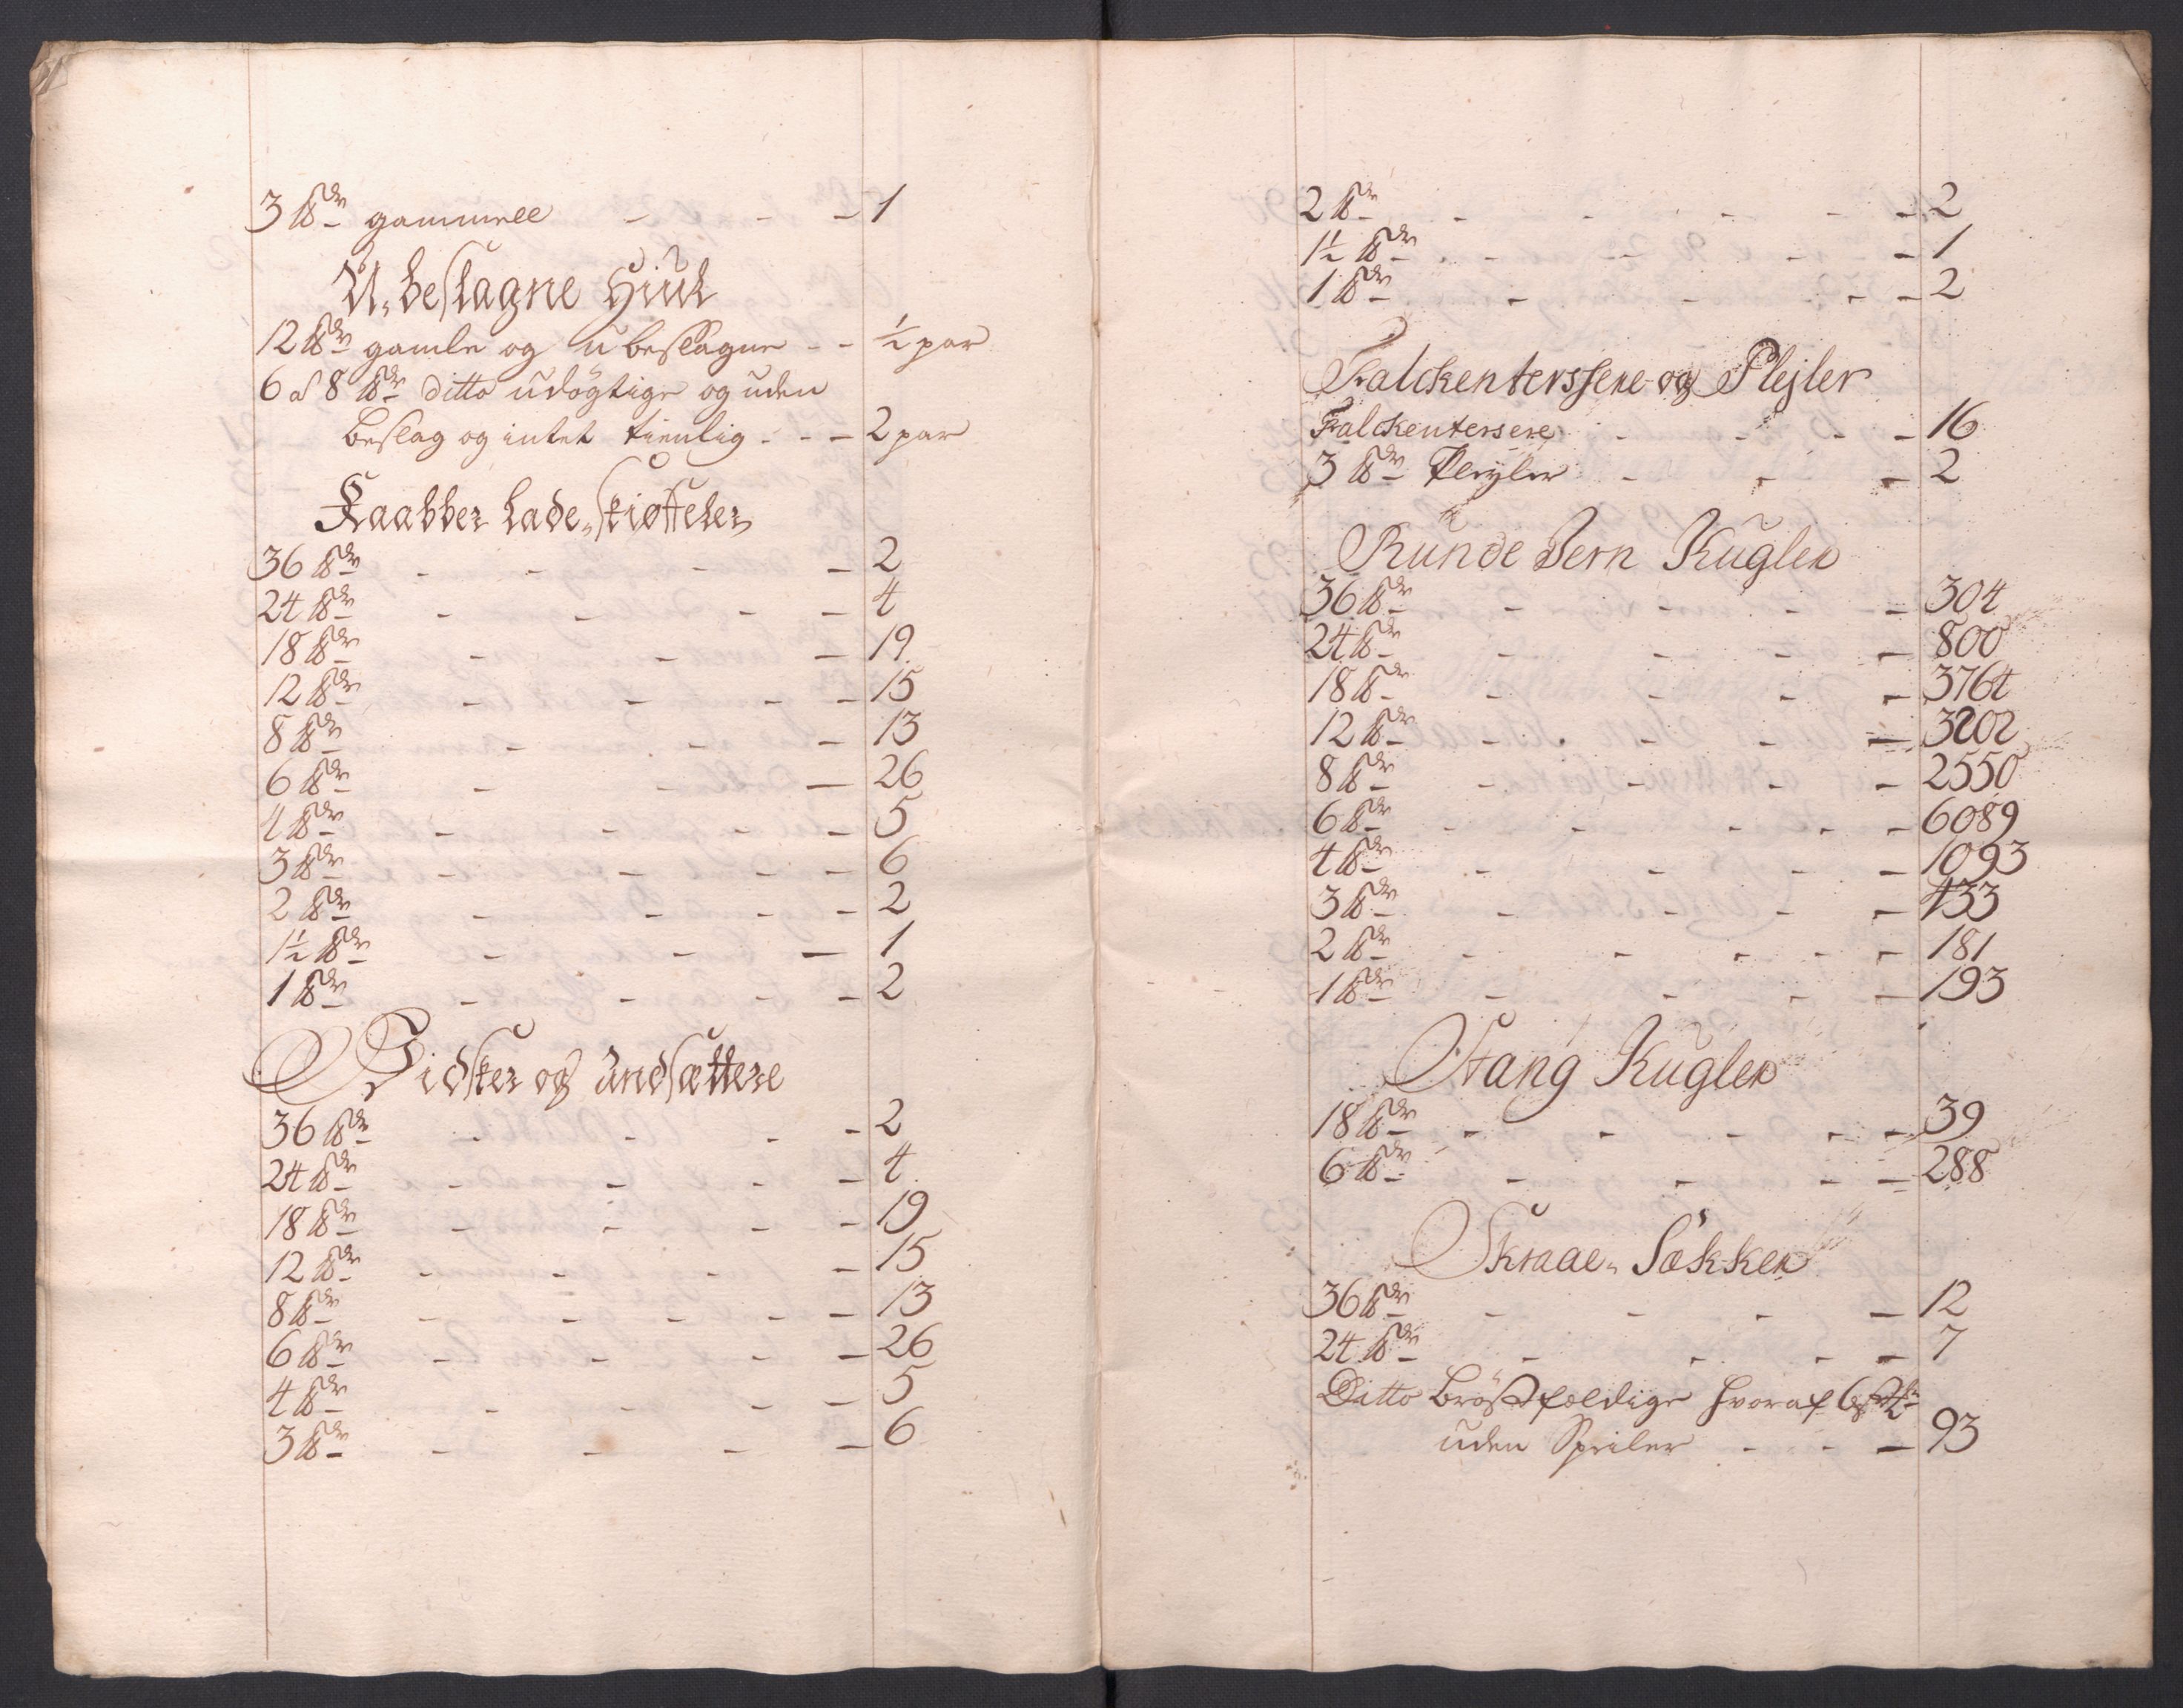 3 ℔dr gammell - - - 1
U-beslagne Hiul
12 ℔dr gamle og ubeslagne - - ½ par
6 a 8 ℔dr ditto udögtige og uden
beslag og intet tienlig - - - 2 par
Kaabber Lade-skiøffeler
36 ℔dr - - - - 2
24 ℔dr - - - - 4
18 ℔dr - - - 19
12 ℔dr - - - - 15
8 ℔dr - - - 13
6 ℔dr - - - 26
4 ℔dr - - - - 5
3 ℔dr - - - - 6
2 ℔dr - - - - 2
1½ ℔dr - - - 1
1 ℔dr - - - - 2
Vidsker og Andsættere
36 ℔dr - - - - 2
24 ℔dr - - - - 4
18 ℔dr - - - - 19
12 ℔dr - - - - 15
8 ℔dr - - - - - 13
6 ℔dr - - - - 26
4 ℔dr - - - - 5
3 ℔dr - - - - 6
2 ℔dr - - - - - 2
1½ ℔dr - - - - - 1
1 ℔dr - - - - 2
Falckenterssere og Plejler
Falckentersere - - - - 16
3 ℔dr Pleyler - - - 2
Runde Jern Kugler
36 ℔dr - - - - 304
24 ℔dr - - - - 800
18 ℔dr - - - - 3764
12 ℔dr - - - - - 3202
8 ℔dr - - - - 2550
6 ℔dr - - - - - 6089
4 ℔dr - - - - 1093
3 ℔dr - - - - 433
2 ℔dr - - - - - 181
1 ℔dr - - - - 193
Stang Kugler
18 ℔dr - - - - - 39
6 ℔dr - - - - 288
Skraae-Sækker
36 ℔dr - - - - 12
24 ℔dr - - - - 7
Ditto bröstfældige hvoraf 6
uden Speiler - - - 93